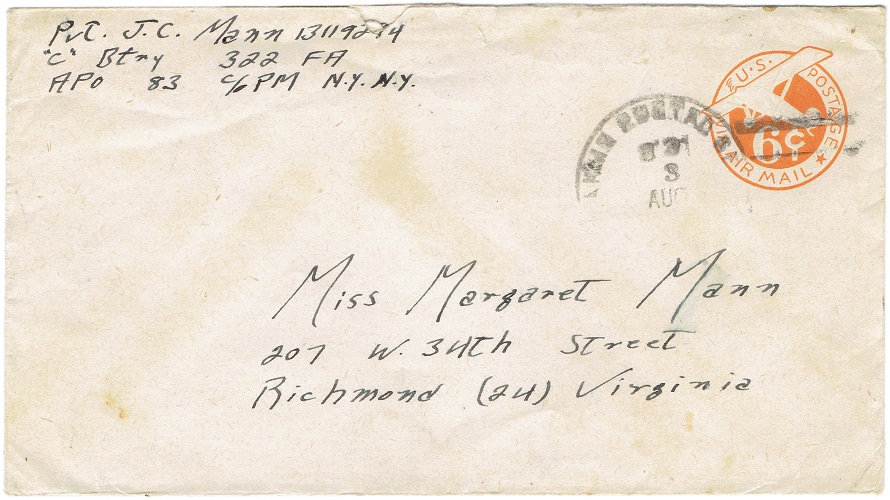 Pvt. J. C. Mann 13119274
"C" Btry 322 FA
APO 83 c/o PM N.Y. N.Y.
U.S. POSTAGE
6¢
VIA AIR MAIL
POSTAL
3
AUG
Miss Margaret Mann
207 W. 34th Street
Richmond (24) Virginia